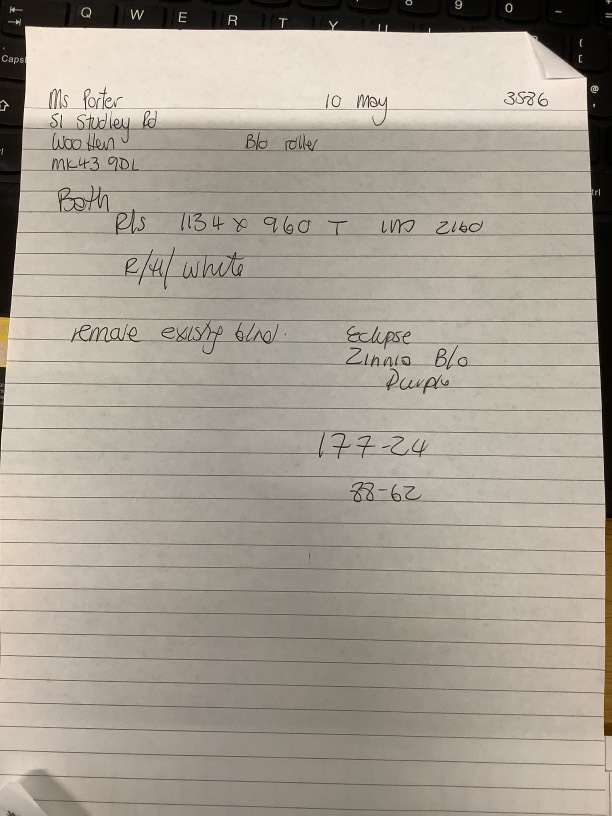 Ms Porter 10 May 3586
51 Studley Rd
Wootten B/o roller
MK43 9DL
Both
R/s 1134 x 960 T 2160
R/H/ white
remove existing blind. Eclipse
Zinnia B/o
Purple
177-24
88-62
Q W E R T Y U 9 0 -
Caps